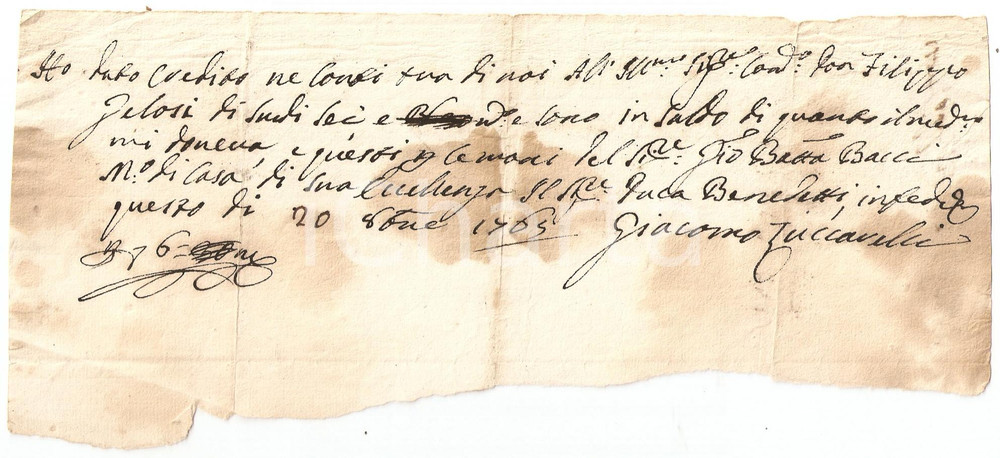 Ho dato credito ne Conti tra di noi All' Illmo Sigre Cando Don Filippo
Gelosi di scudi sei e sono in saldo di quanto il medo
mi doveva, e questi p le mani del Sre Gio Batta Bacci
Mo di Casa di Sua Eccellenza Il Sre Duca Benedetti, in fede
questo dì 20 8bre 1765 Giacomo Zuccarelli
6